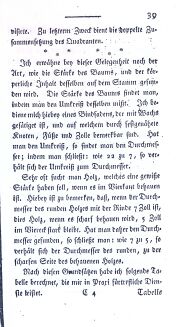 39
visete. Zu letzterm Zweck dient die doppelte Zu⸗
sammensetzung des Quadranten.
* * * * *
Ich erwähne hey dieser Gelegenheit noch der
Art, wie die Stärke des Baums, und der kör⸗
perliche Inhalt desselben auf dem Stamm gefun⸗
den wird. Die Stärke des Baums zu finden,
mißt man den Umkreis desselben mißt. Ich be⸗
diene mich hiezu eines Bindfadens, der mit Wachs
gesättigt ist, und auf welchem durch angewendete
Knoten, Füße und Zolle bemerkbar sind. Hat
man den Umkreis, so findet man den Durchmes⸗
ser; indem man schließt: wie 22 zu 7, so ver⸗
hält sich der Umkreis zum Durchmesser.
Sehr oft sucht man Holz, welches eine gewisse
Stärke haben soll, wenn es im Vierkant behauen
ist. Hiebey ist zu bemerken, daß, wenn der Durch⸗
messer des runden Holzes mit der Rinde 7 Zoll ist,
dies Holz, wenn es scharf behauen wird, 5 Zoll
im Viereck stark bleibt. Hat man daher den Durch⸗
messer gefunden, so schließt man: wie 7 zu 5, so
verhält sich der Durchmesser des runden, zu
der scharfen Seite des behauenen Holzes.
Nach diesen Grundsätzen habe ich folgende Ta⸗
belle berechnet, die mir in Praxi fürtreffliche Dien⸗
ste leistet.
C 4
Tabelle